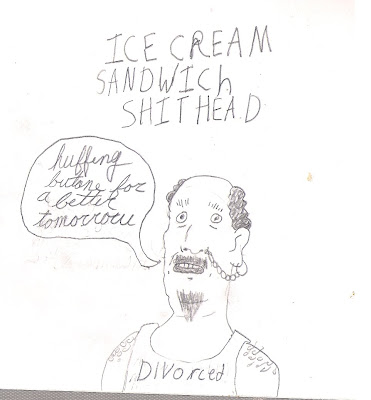 ICE CREAM
SANDWICh
SHITHEAD
huffing
butane for
a better
tomorrow
DIVorced